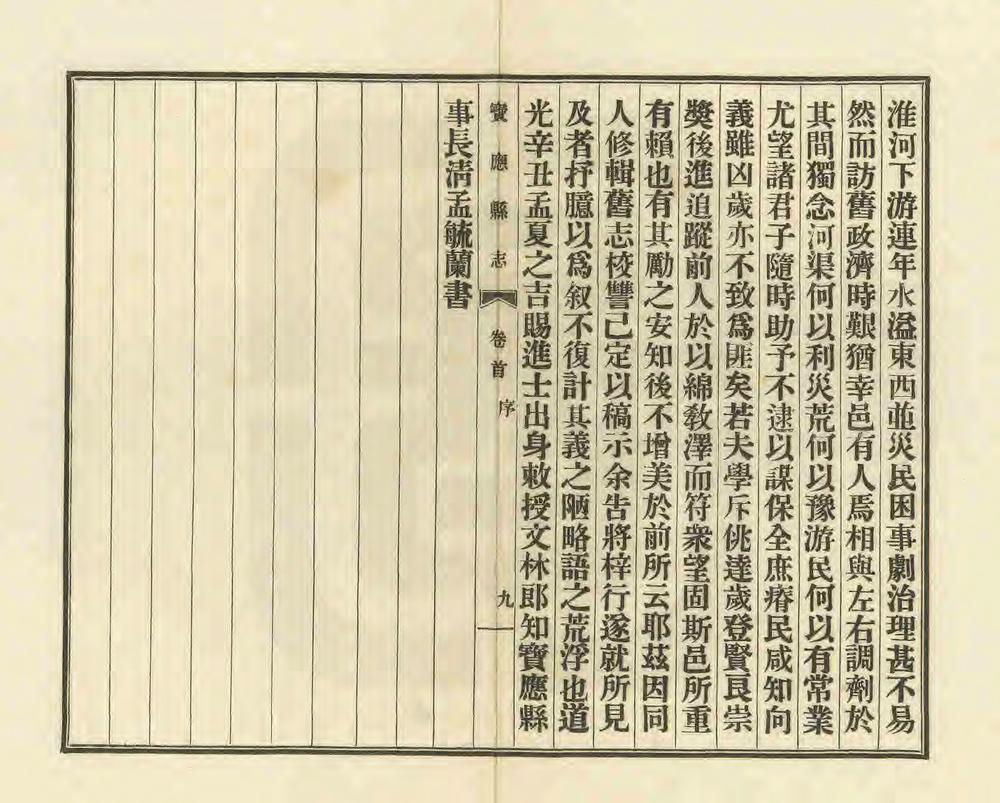 淮河下游連年水溢東西並災民困事劇治理甚不易
然而訪舊政濟時艱猶幸邑有人焉相與左右調劑於
其間獨念河渠何以利災荒何以豫游民何以有常業
尤望諸君子隨時助予不逮以謀保全庶瘠民咸知向
義雖凶歲亦不致爲匪矣若夫學斥佻達歲登賢良崇
獎後進追蹤前人於以綿教澤而符衆望固斯邑所重
有賴也有其勵之安知後不增美於前所云耶茲因同
人修輯舊志校讐已定以稿示余告將梓行遂就所見
及者抒臆以爲叙不復計其義之陋略語之荒浮也道
光辛丑孟夏之吉賜進士出身敕授文林郎知寶應縣
寶應縣志 卷首 序 九
事長淸孟毓蘭書